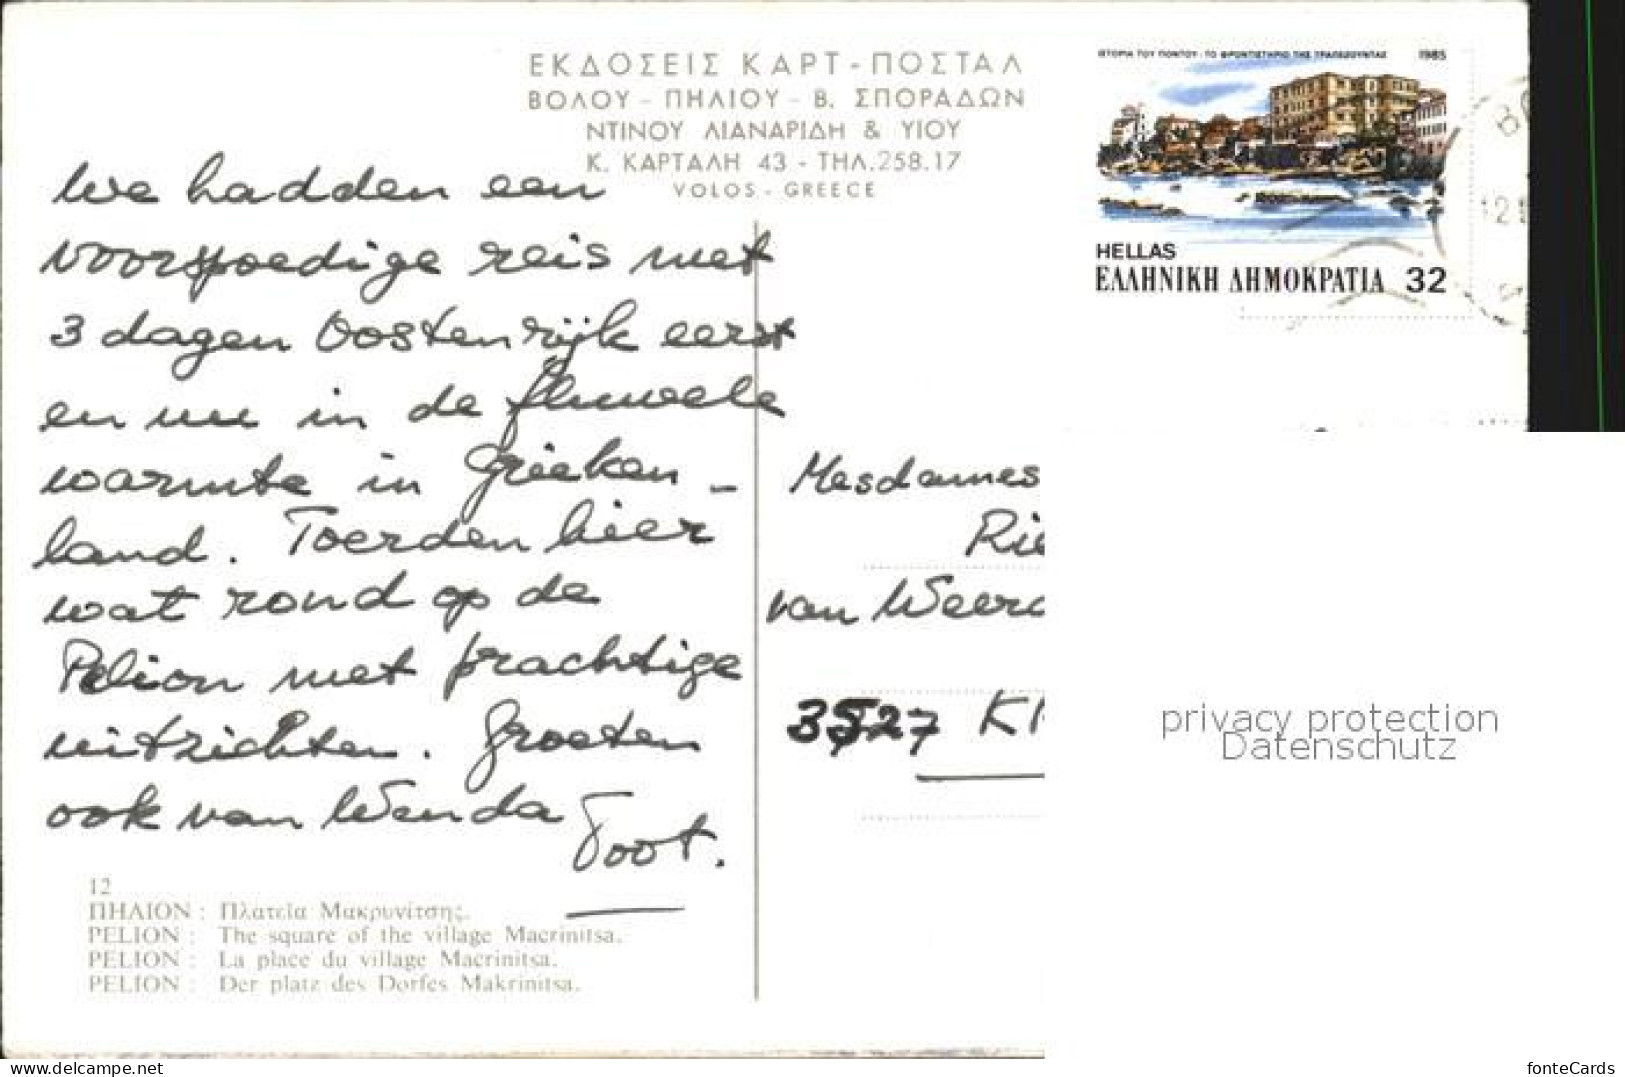 ΕΚΔΟΣΕΙΣ ΚΑΡΤ-ΠΟΣΤΑΛ
ΒΟΛΟΥ - ΠΗΛΙΟΥ - Β. ΣΠΟΡΑΔΩΝ
ΝΤΙΝΟΥ ΛΙΑΝΑΡΙΔΗ & ΥΙΟΥ
Κ. ΚΑΡΤΑΛΗ 43 - ΤΗΛ.258.17
VOLOS - GREECE
ΙΣΤΟΡΙΑ ΤΟΥ ΠΟΝΤΟΥ · ΤΟ ΦΡΟΝΤΙΣΤΗΡΙΟ ΤΗΣ ΤΡΑΠΕΖΟΥΝΤΑΣ 1985
HELLAS
ΕΛΛΗΝΙΚΗ ΔΗΜΟΚΡΑΤΙΑ 32
We hadden een
voorspoedige reis met
3 dagen Oostenrijk eerst
en nu in de fluwele
warmte in Grieken-
land. Toerden hier
wat rond op de
Pelion met prachtige
uitzichten. Groeten
ook van Wenda
Toot.
Mesdames
Rie
van Weer
3527 K
12
ΠΗΛΙΟΝ : Πλατεία Μακρυνίτσης.
PELION : The square of the village Macrinitsa.
PELION : La place du village Macrinitsa.
PELION : Der platz des Dorfes Makrinitsa.
privacy protection
Datenschutz
www.delcampe.net
fonteCards